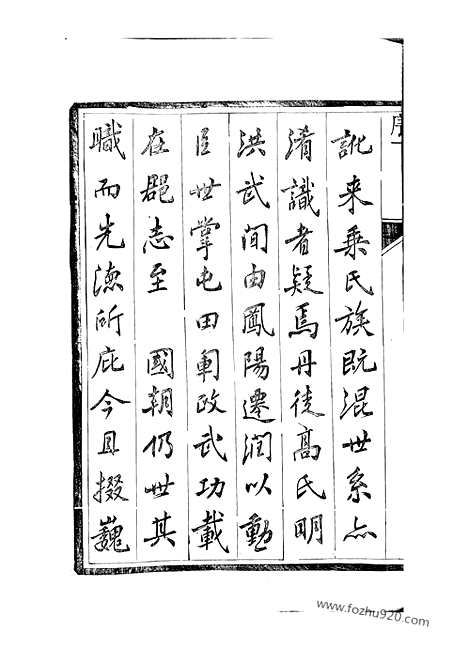 序
訛来乗氏族既混世系亦
淆識者疑焉丹徒高氏明
洪武间由鳳陽遷润以勳
臣世掌屯田軍政武功載
在郡志至　國朝仍世其
職而先德所庇今且掇巍
www.fozhu920.com